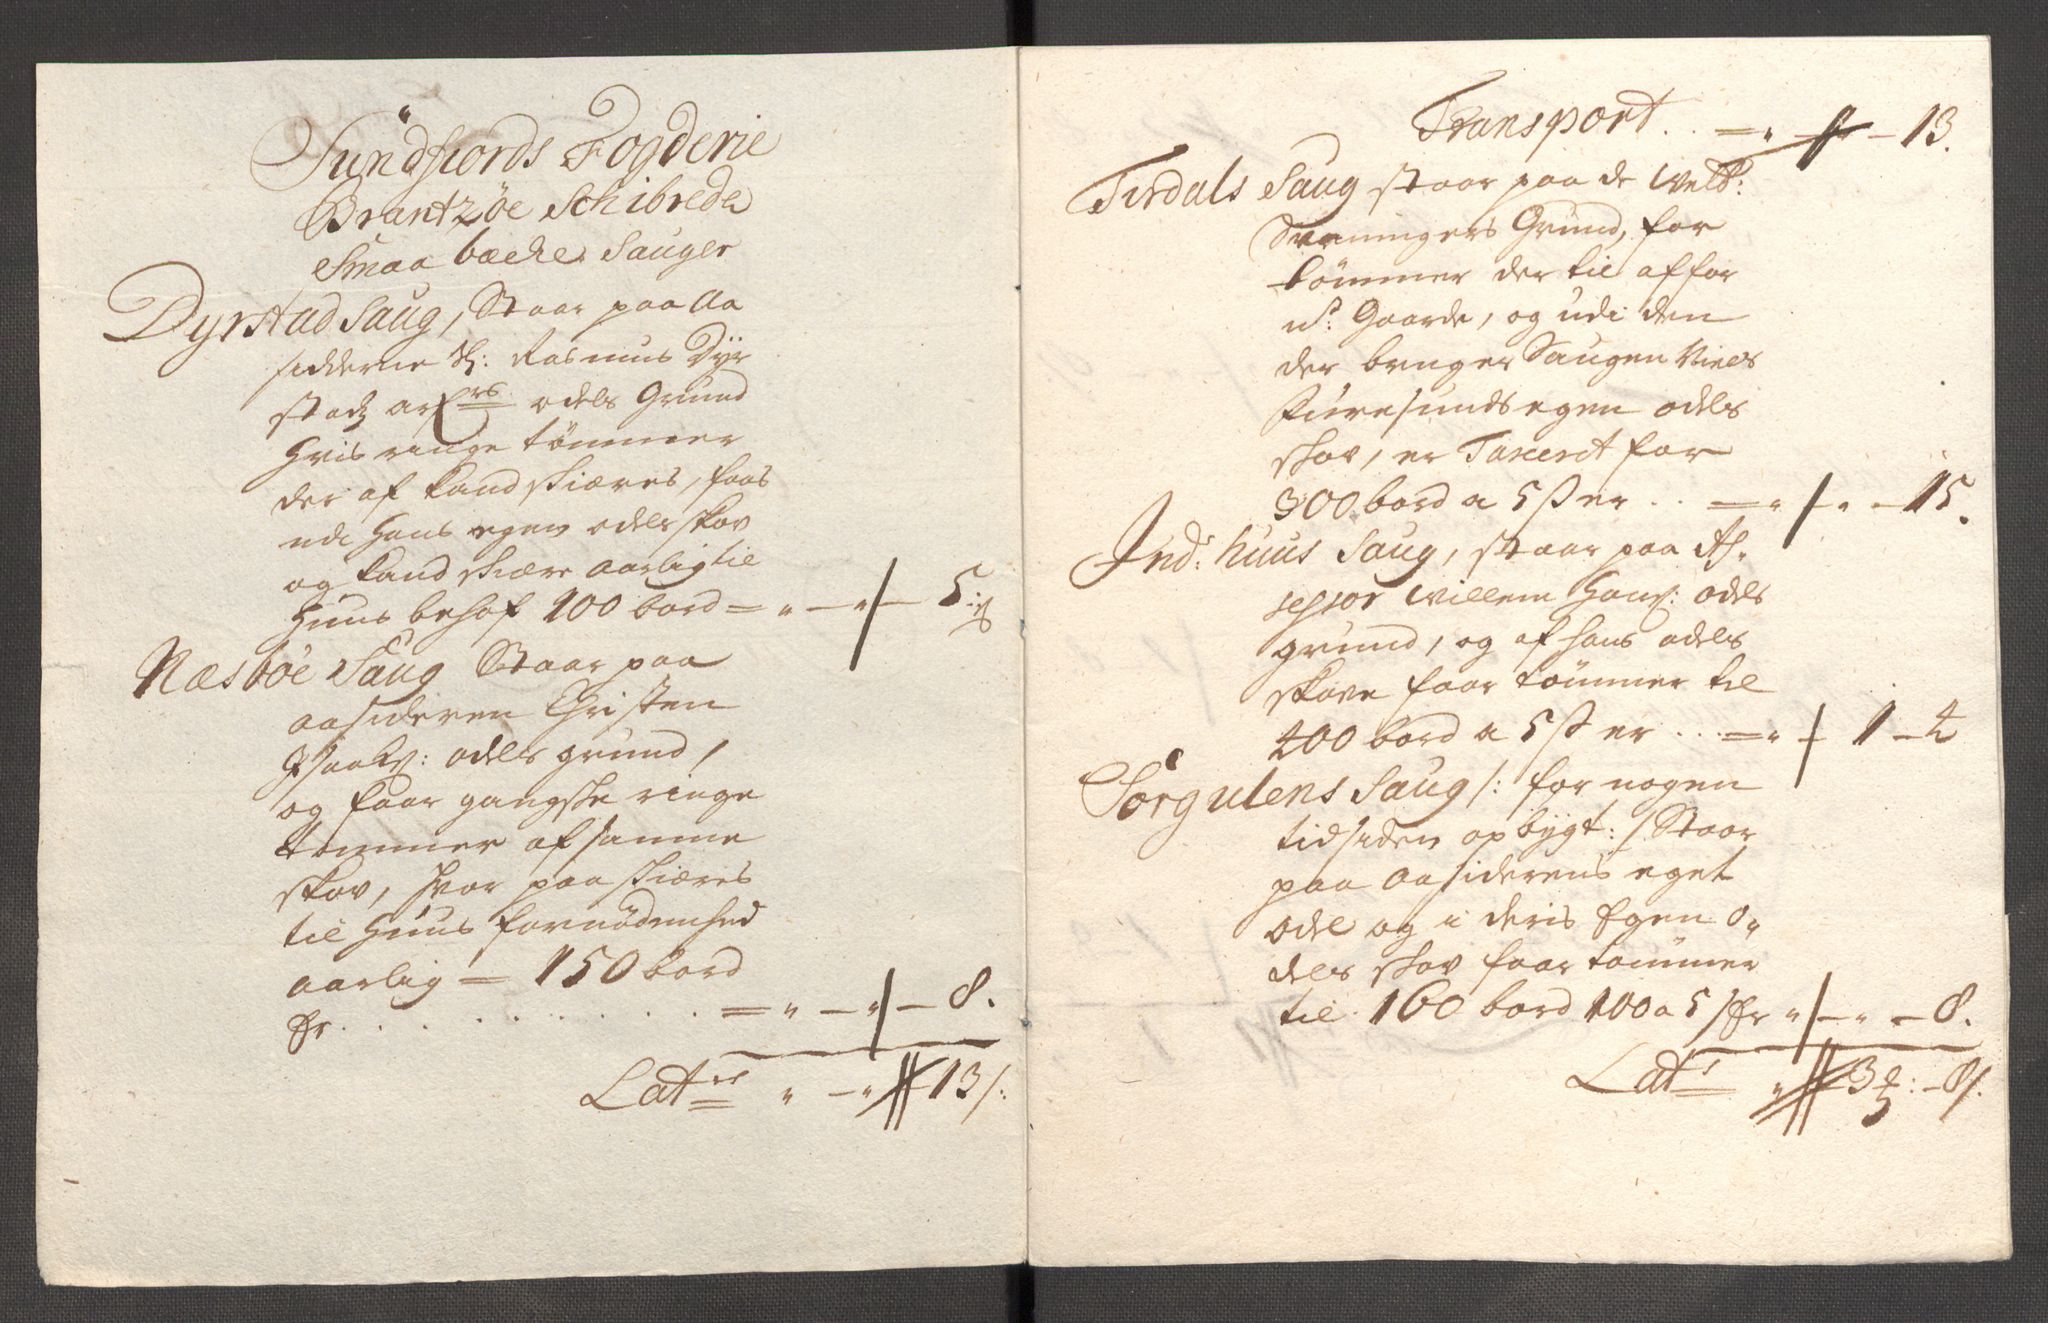 Sundfiords Fogderie
Brantzöe Schibrede
Smaa bæcke Sauger
Dyrstad Saug, Staar paa Aa
sidderne Sl: Rasmus Dyr
stads arf rs odels Grund
Hvis ringe tømmer
der af kand skiæres, faaes
udi hans egen odels skov
og kand skiære aarlig til
Huus behof 100 bord = " — " — 5 s
Næsbøe Saug Staar paa
aasideren Christen
Isaks: odels grund,
og faar gangske ringe
tømmer af samme
skov, hvor paa skiæres
til Huus fornødenhed
aarlig = 150 bord
Er . . . . . . . . = " — " — 8.
Lat " — " 13 /:
Transport . . = " — 13.
Tirdals Saug staar paa de
Grund, for
tømmer der til af for
n: Gaarde, og udi den
der bruger Saugen Niels
Furesunds egen odels
skov, er Taxerit for
300 bord a 5 s er . . = " — " — 15.
Ind: huus Saug, staar paa As-
sessor Willem Hans: odels
grund, og af hans odels
skove faar tømmer til
400 bord a 5 s er . . . = " — 1 — 4
Sørgulens Saug /: for nogen
tid siden opbygt: / Staar
paa Aasiderens eget
odel og i deris Egen o-
dels skov faar tømmer
til 160 bord 100 a 5 s Er " — " — 8.
Lat " 3 : — 8 /.